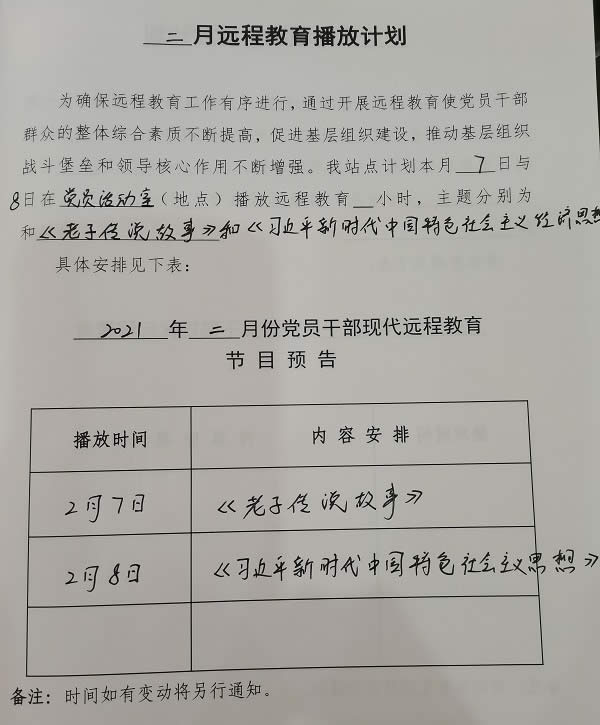 二月远程教育播放计划
为确保远程教育工作有序进行，通过开展远程教育使党员干部
群众的整体综合素质不断提高，促进基层组织建设，推动基层组织
战斗堡垒和领导核心作用不断增强。我站点计划本月 7 日与
8日在党员活动室（地点）播放远程教育 小时，主题分别为
和《老子传说故事》和《习近平新时代中国特色社会主义经济思想
具体安排见下表：
2021 年 二 月份党员干部现代远程教育
节目预告
播放时间 内容安排
2月7日 《老子传说故事》
2月8日 《习近平新时代中国特色社会主义思想》
备注：时间如有变动将另行通知。